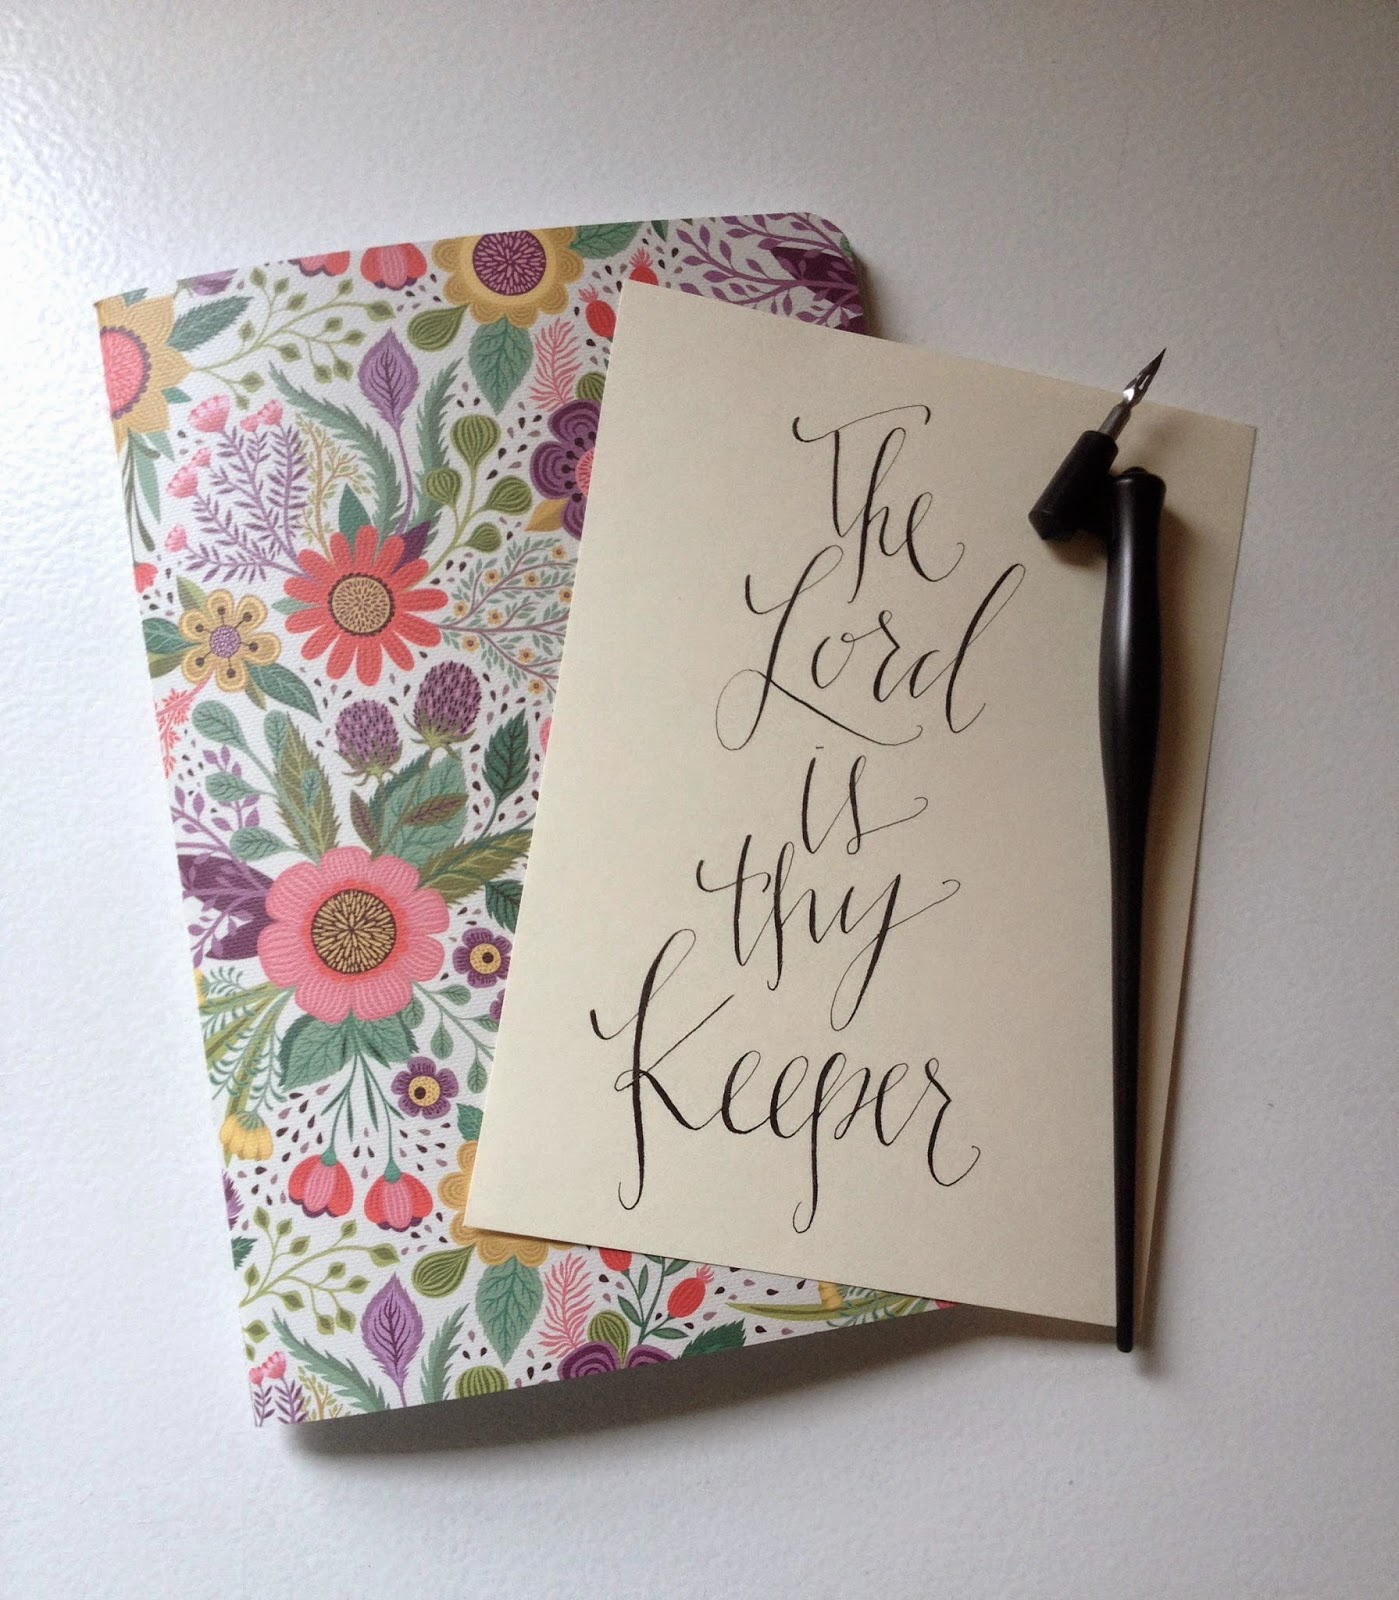 The
Lord
is
thy
Keeper